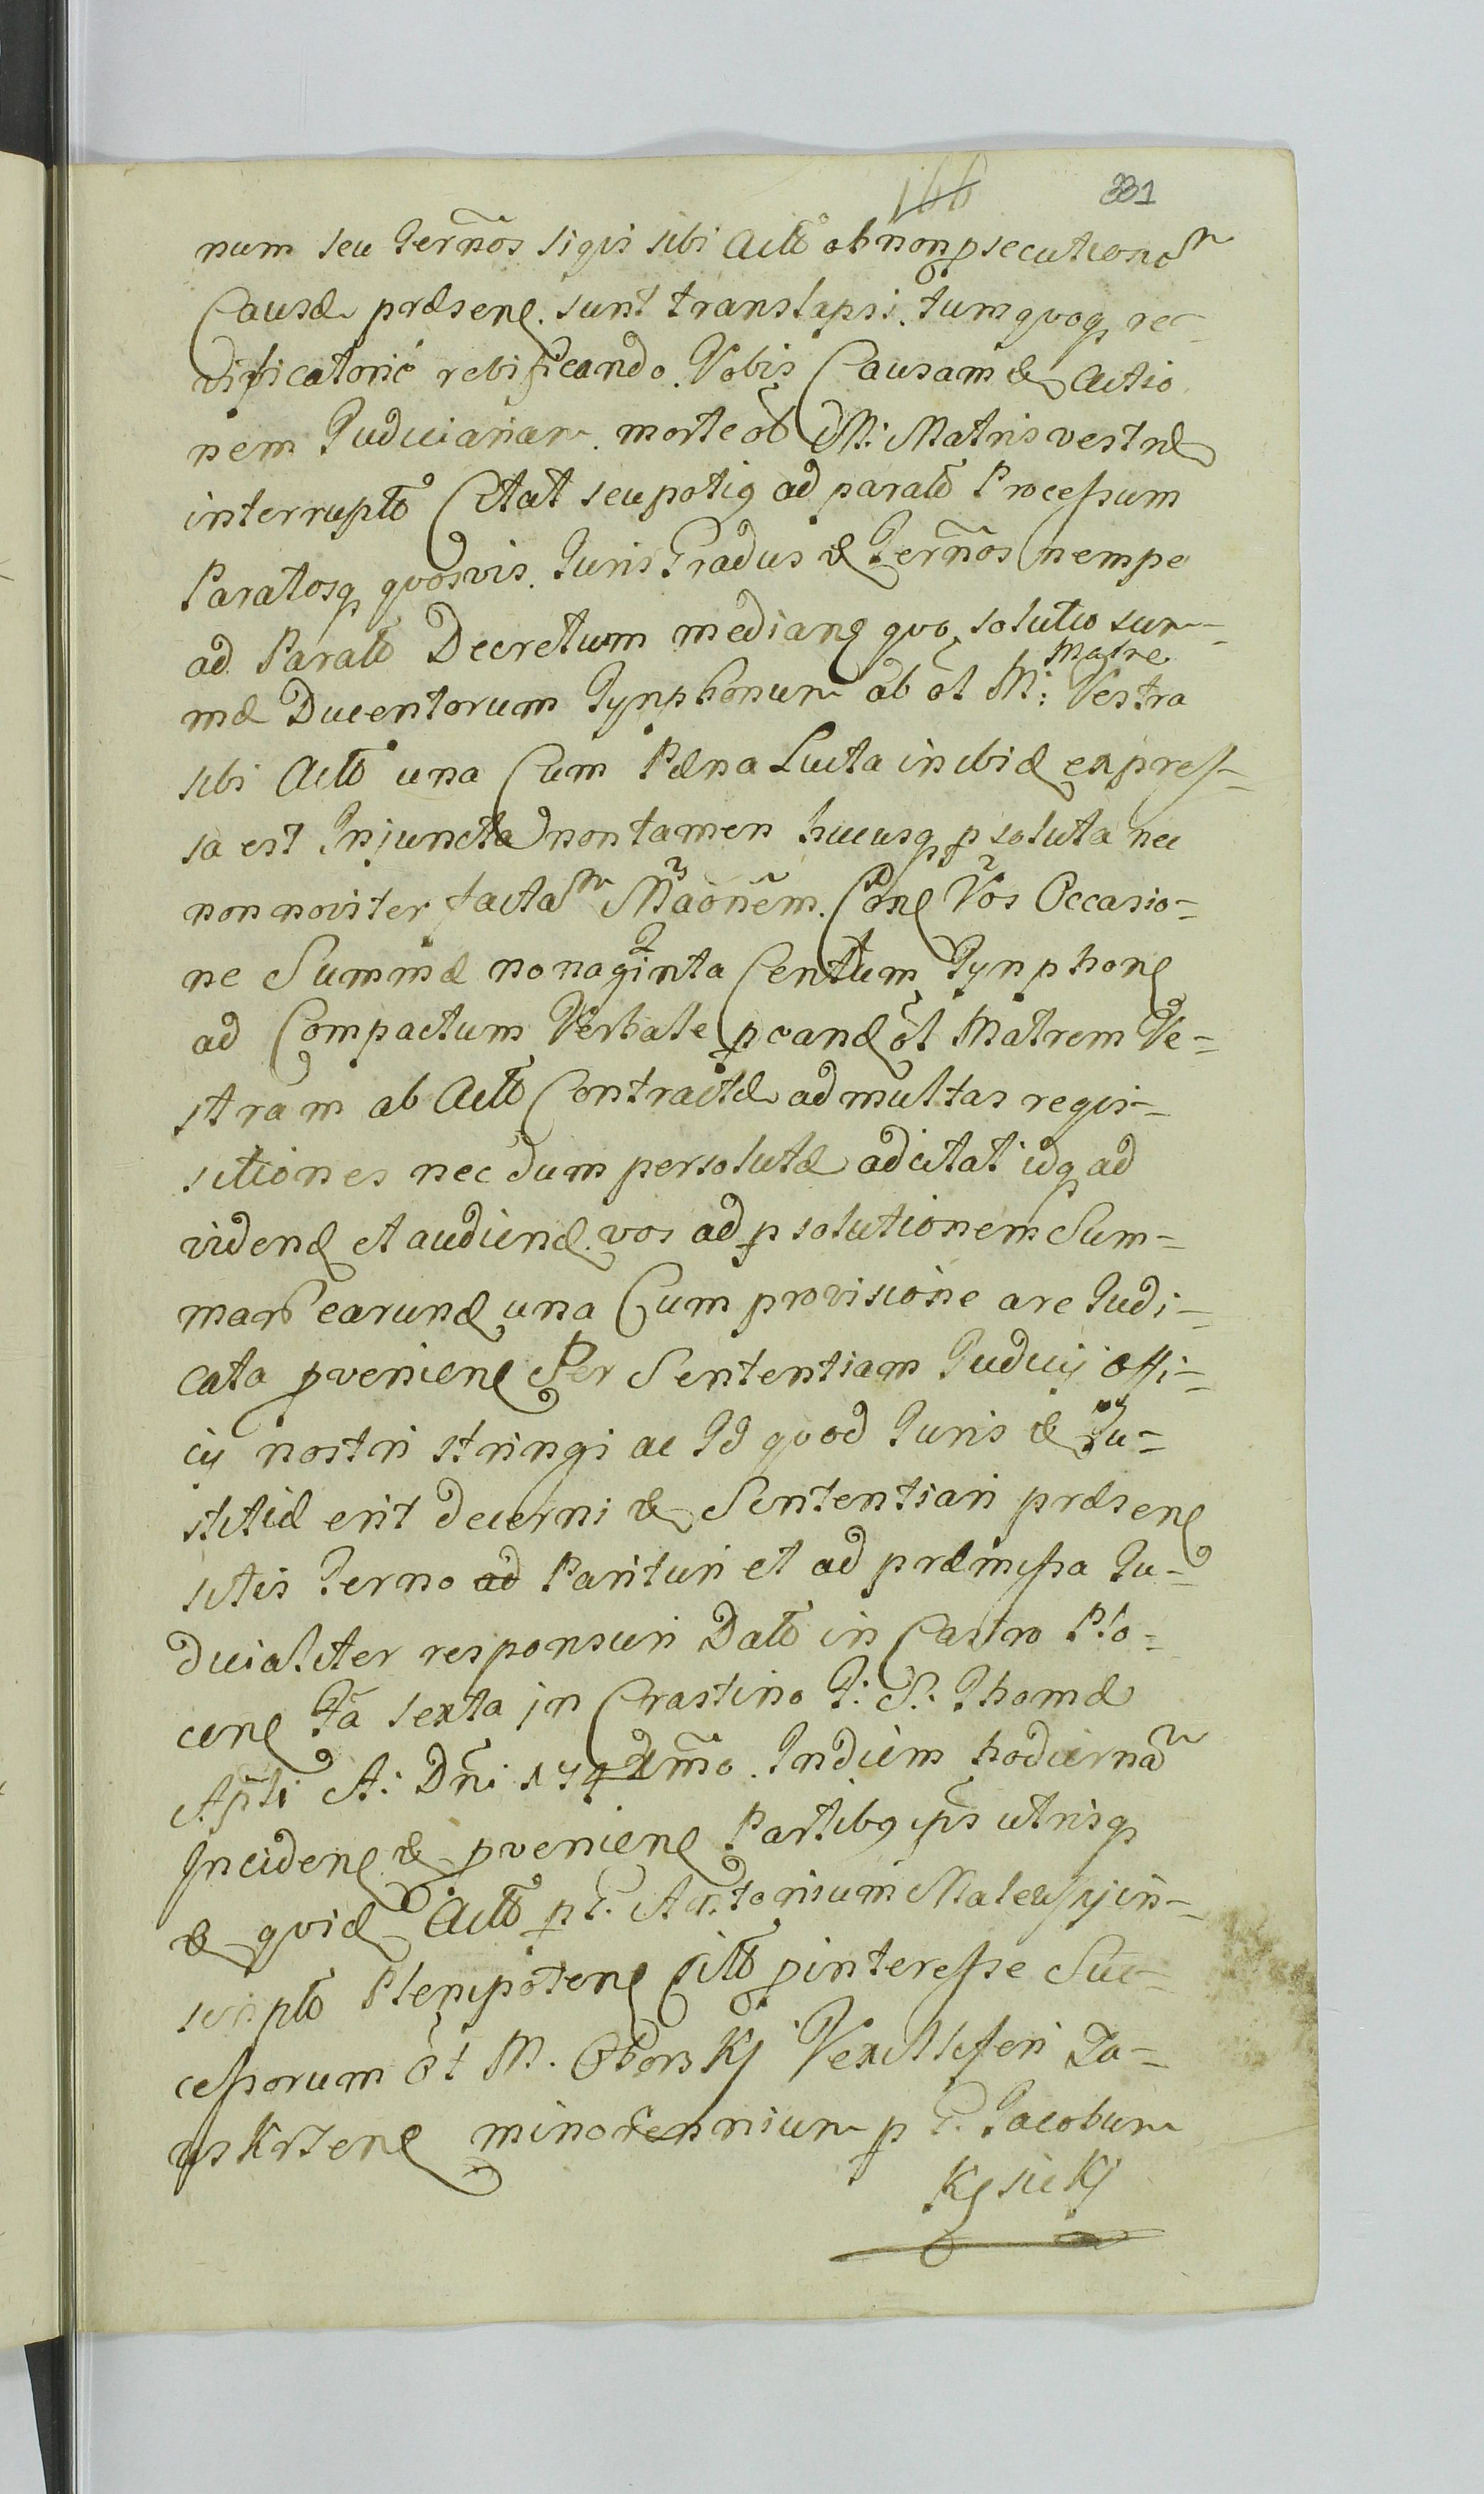 166 331
num seu Termõs siqis sibi Actõ ob non psecutionem
Causæ præsen. sunt translapsi. tum quoq re-
ctificatorie rebificando. Vobis Causam & Actio
nem Judiciariam. morte ot M: Matris vestræ
interruptõ Citat seu potiq ad paratõ Processum
Paratosq quosvis. Juris Gradus & Termõs nempe
ad Paratõ Decretum medianq quo solutio sum-
mæ Ducentorum Tynphonum ab ot M: Matre Vestra
sibi Actõ una Cum Pæna Lucta inibiq expres-
sa est Injuncta non tamen hucusq psoluta nec
non noviter factam Mãonẽm. Conq Vos Occasio-
ne Summæ nonaginta Centum Tynphonq
ad Compactum Verbale pcand ot Matrem Ve-
stram ab Actõ Contractæ ad multas regis-
sitiones nec dum persolutæ adcitat idq ad
vidend et audiend. vos ad psolutionem Sum-
mars earund una Cum provisione a re Judi-
cata pvenienq Per Sententiam Judicij offi-
cij nostri stringi ac Id quod Juris & Ju-
stitiæ erit decerni & Sententiari præsenq
sitis Terno ad Parituri et ad præmissa Ju-
dicialiter responsuri Datõ in Castro Plo-
cenq Fã sexta in Crastino F: S: Thomæ
Apli A: Dñi 1742dmõ. In diem hodiernam
Incidenq & pvenienq Partibq ipis utrisq
& quid Actõ p G. Antonium Malewskj in-
scriptõ Plenipotenq Citõ p interesse Suc-
cessorum ot M. Oborskj Vexilliferi Za-
wskrzenq minorennium p G. Jacobum
Kęsickj